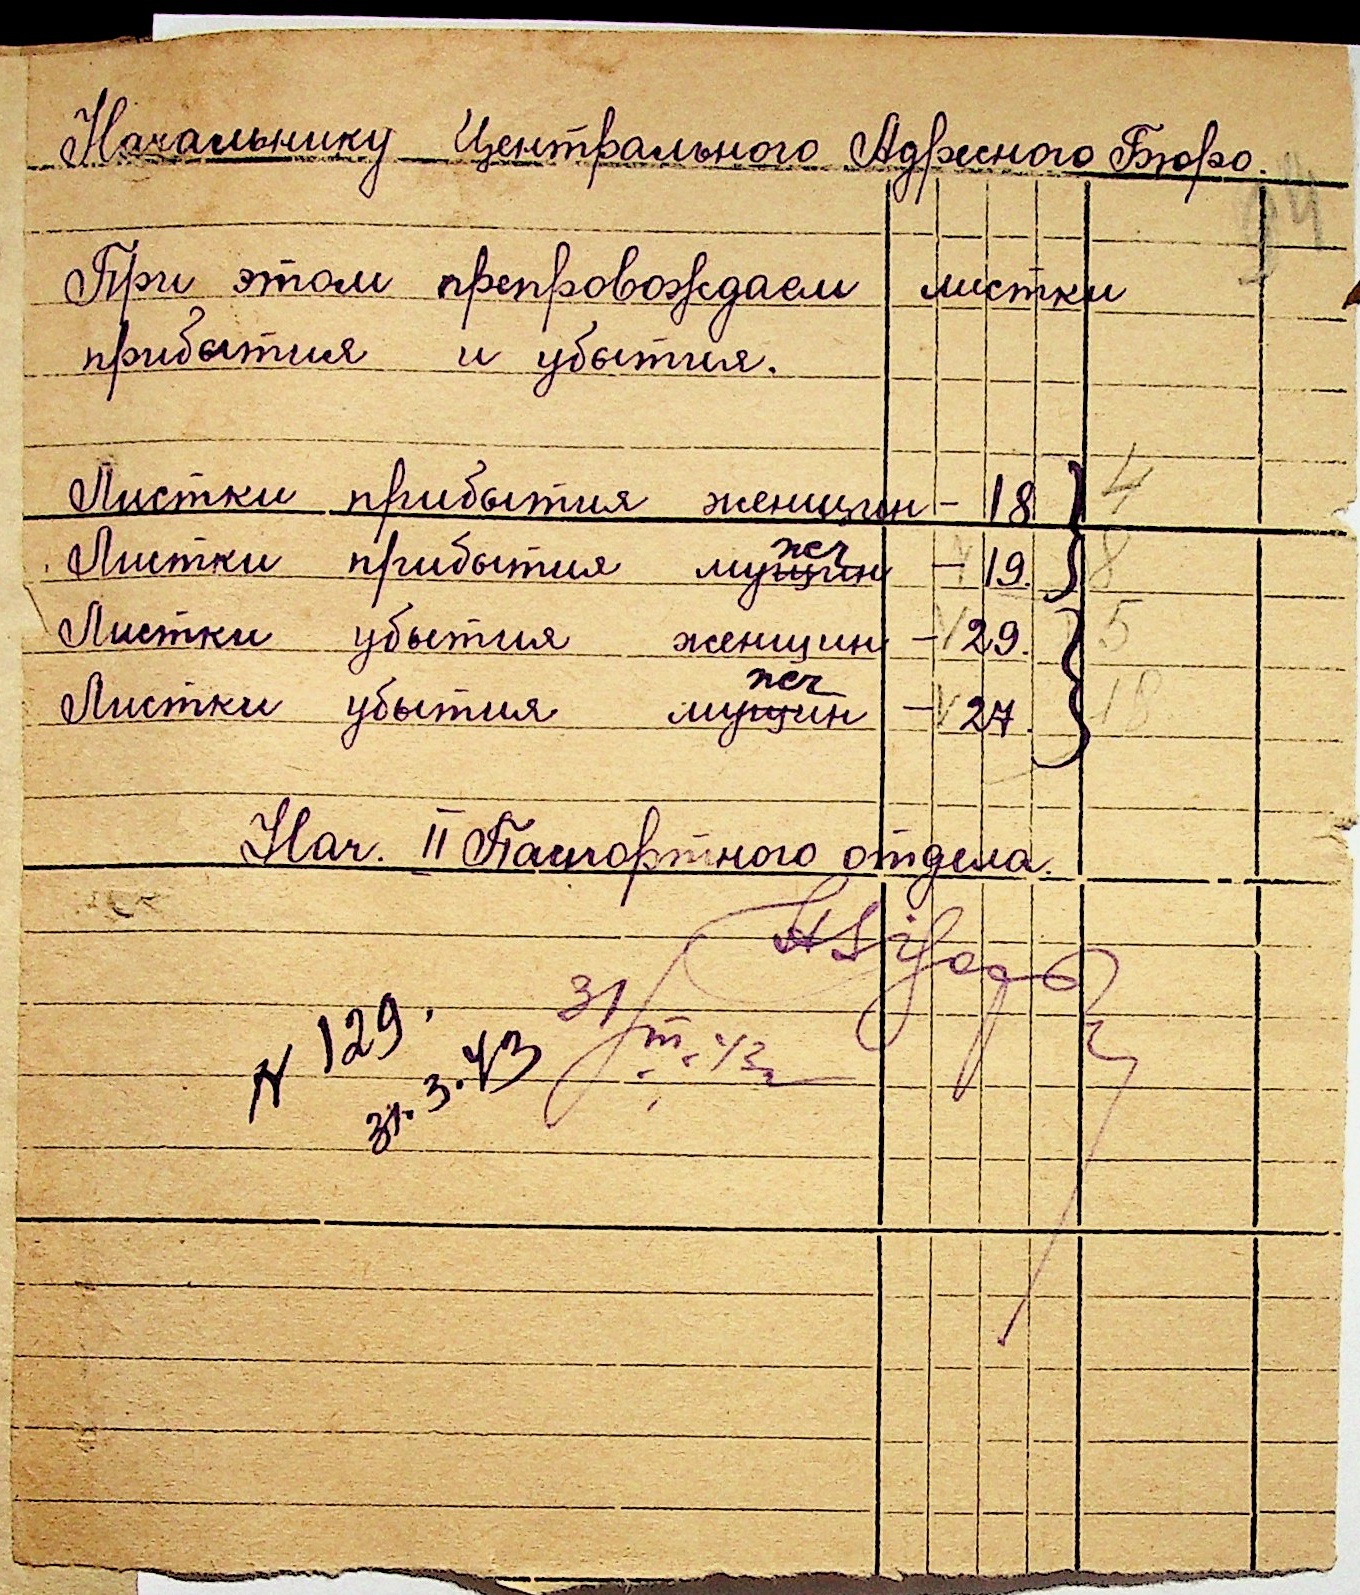 Начальнику Центрального Адресного Бюро.
При этом препровождаем листки
прибытия и убытия.
Листки прибытия женщин - 18 } 4
жч
Листки прибытия мущин - 19. 8
Листки убытия женщин - 29. } 5
жч
Листки убытия мущин - 27. 18
Нач. II Паспортного отдела.
31/III.43
N 129.
31.3.43